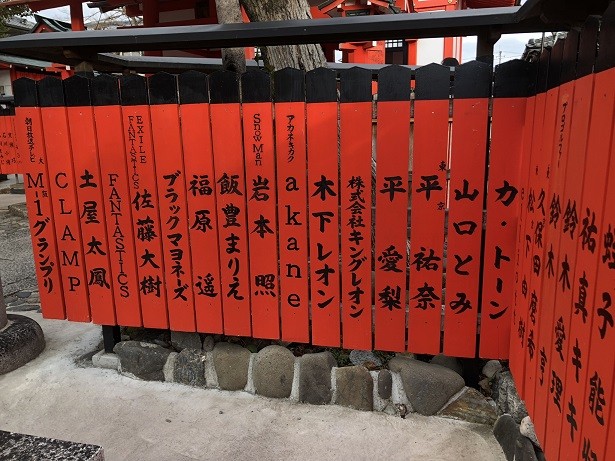 蛭子能収
祐真キキ
鈴木愛理
鈴木
久保田磨希
松下
カ・トーン
山口とみ
東京
平祐奈
平愛梨
株式会社キングレオン
木下レオン
アカネキカク
akane
SnowMan
岩本照
飯豊まりえ
福原遥
ブラックマヨネーズ
EXILE
FANTASTICS
佐藤大樹
FANTASTICS
土屋太鳳
CLAMP
大阪
朝日放送テレビ
M1グランプリ